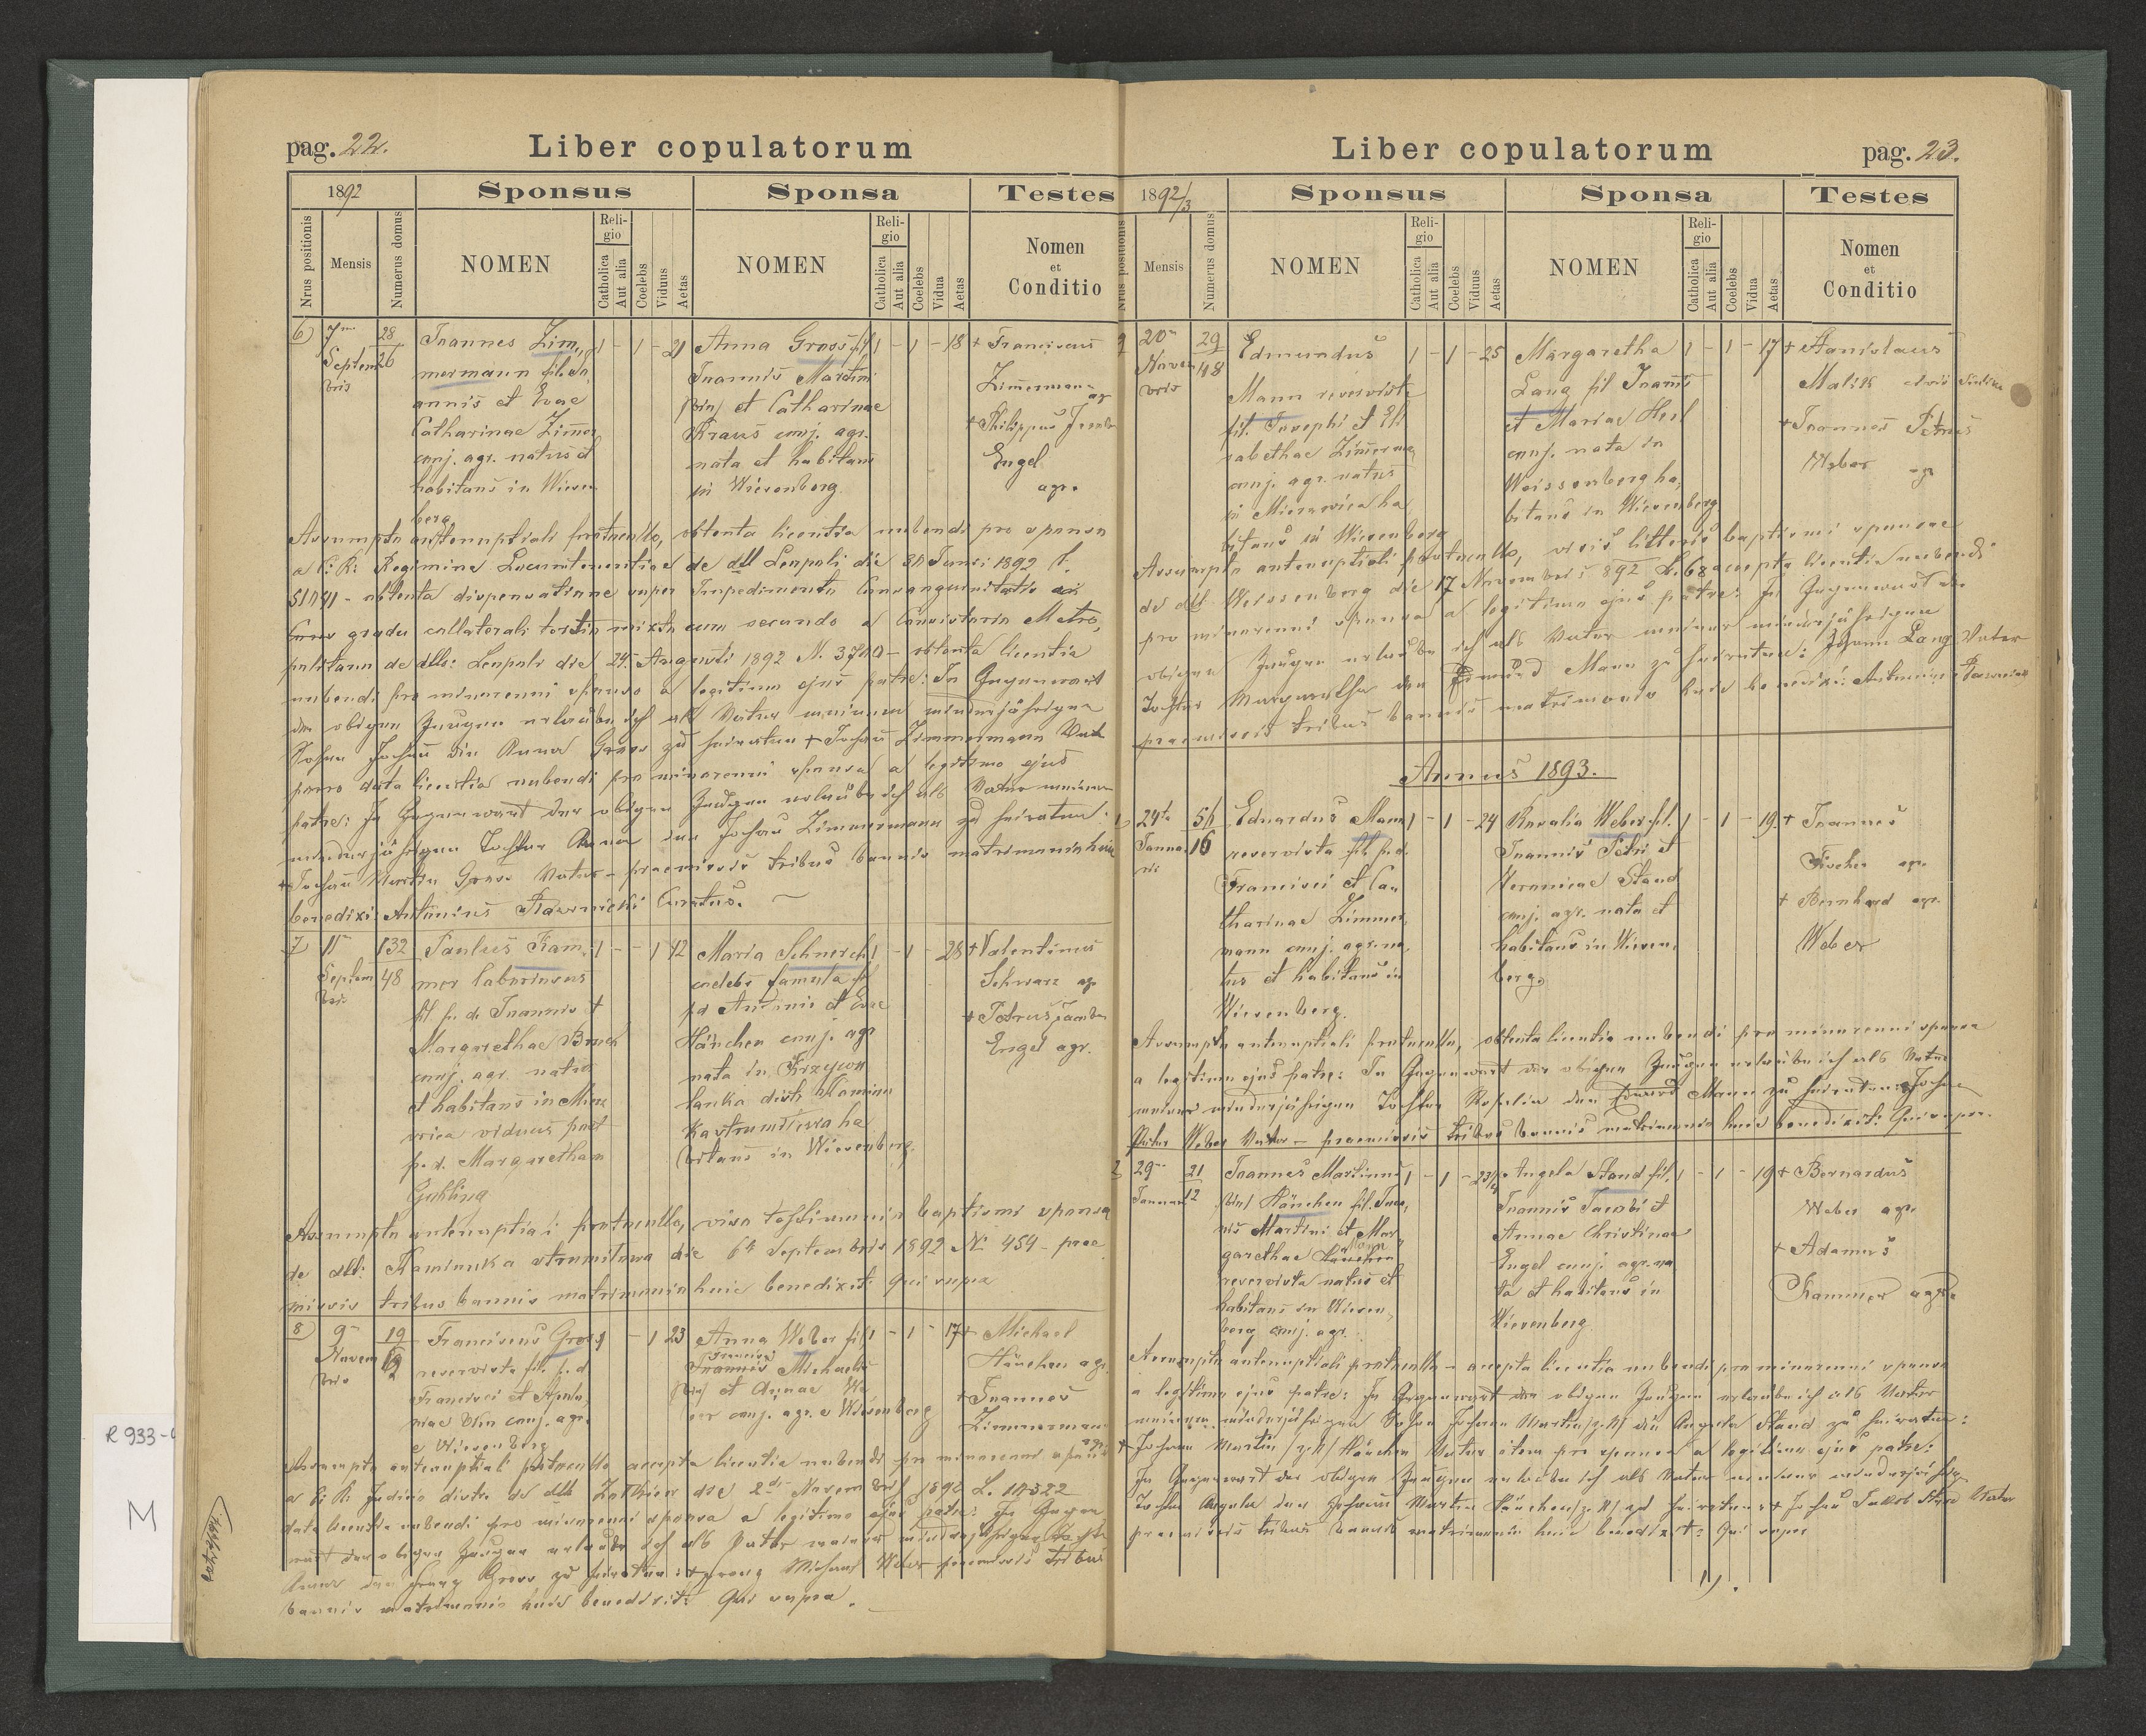 pag. 22.
Liber copulatorum
1892
Sponsus
Sponsa
Testes
Nrus positionis
Mensis
Numerus domus
NOMEN
Religio
Catholica
Aut alia
Coelebs
Viduus
Aetas
NOMEN
Religio
Catholica
Aut alia
Coelebs
Vidua
Aetas
Nomen
et
Conditio
6) 7 28 Joannes Zim, 1 - 1 - 21 Anna Gross fil 1 - 1 - 18 + Franciscus
Septem 26 mermann fil. Jo, Joannis Martini Zimmermann
bris annis et Evae /bin/ et Catharinae agr
Catharinae Zimmer Kraus conj. agr. + Philippus Jacob
conj. agr. natus et nata et habitans Engel
habitans in Wiesen in Wiesenberg agr.
berg
Assumpto antenuptiali protocollo, obtenta licentia nubendi pro sponso
a C: R: Regimine Locumtenentiae de dtt Leopoli die 30 Junii 1892 L.
51081 - obtenta dispensatione super Impedimento Consanguinitatis
gradu collaterali tertio mixto cum secundo a Consistorio Metro,
politano de dtto: Leopoli die 24. Augusti 1892 N. 3700 - obtenta licentia
nubendi pro minorenni sponso a legitimo ejus patre: In Gegenwart
der obigen Zeugen erlaube ich als Vater meinem minderjährigen
Sohne Johann die Anna Gross zu heiraten + Johann Zimmermann Vater
porro data licentia nubendi pro minorenni sponsa a legitimo ejus
patre: In Gegenwart der obigen Zeugen erlaube ich als Vater meiner
minderjährigen Tochter Anna den Johann Zimmermann zu heiraten:
+ Johann Martin Gross Vater - praemissis tribus bannis matrimonio huic
benedixi: Antonius Curatus.
7 11 132 Paulus Kam, 1 - - 1 42 Maria Schnerch 1 - 1 - 28 + Valentinus
Septem 48 mer laboriosus coelebs famula fil Schwarz agr
bris fil. p. d. Joannis et pd Antonii et Evae + Petrus Jacobus
Margarethae Bruch Hänchen conj. agr Engel agr.
conj. agr. natus nata in
et habitans in Mierz lanka distr Kamion
wica viduus post ka strumilowa ha
p. d. Margaretham bitans in Wiesenberg.
Guhling
Assumpto antenuptiali protocollo, viso testimonio baptismi sponsae
de dtt: Kamionka strumilowa die 6 Septembris 1892 N: 454 - prae
missis tribus bannis matrimonio huic benedixit: qui supra
8 9 19 Franciscus Gross 1 - 1 23 Anna Weber fil, 1 - 1 - 17 + Michael
Novem 12 reservista fil. p. d Francisci Michaelis Hänchen agr.
bris Francisci et Apolo, /bin/ et Annae We + Joannes
niae conj. agr. ber conj. agr. e Wiesenberg Zimmermann
e Wiesenberg agr.
Assumpto antenuptiali protocollo accepta licentia nubendi pro minorenni sponso
a C: R: Judicio distr. de dtt Zolkiew die 2 Novembris 1892 L. 10322
data licentia nubendi pro minorenni sponsa a legitimo ejus patre: In Gegen
wart der obigen Zeugen erlaube ich als Vater meiner minderjährigen Tochter
Anna den Franz Gross zu heiraten: + Franz Michael Weber praemissis tribus
bannis matrimonio huic benedixit: Qui supra.
pag. 23.
Liber copulatorum
1892/3
Sponsus
Sponsa
Testes
Nrus positionis
Mensis
Numerus domus
NOMEN
Religio
Catholica
Aut alia
Coelebs
Viduus
Aetas
NOMEN
Religio
Catholica
Aut alia
Coelebs
Vidua
Aetas
Nomen
et
Conditio
9 20 29 Edmundus 1 - 1 - 25 Margaretha 1 - 1 - 17 + Stanislaus
Novem 48 Mann reservista Lang fil Joannis Malik
bris fil. Josephi et Eli et Mariae Herl + Joannes Petrus
sabethae Zimerma conj. nata in Weber agr
conj. agr. natus Weissenberg ha,
in Mierzwica ha bitans in Wiesenberg
bitans in Wiesenberg
Assumpto antenuptiali protocollo, visis litteris baptismi sponsae
de dtt. Weissenberg die 17 Novembris 892 L. 68 accepta licentia nubendi
pro minorenni sponsa a legitimo ejus patre: In Gegenwart der
obigen Zeugen erlaube ich als Vater meiner minderjährigen
Tochter Margaretha den Edmund Mann zu heiraten: Johann Lang Vater
praemissis tribus bannis matrimonio huic benedixi: Antonius
Annus 1893.
1) 24 51 Eduardus Mann 1 - 1 - 24 Rosalia Weber fil. 1 - 1 - 19. + Joannes
Janua 16 reservista fil. p. d. Joannis Petri et Fischer agr.
ris Francisci et Ca, Veronicae Stand + Bernhard agr.
tharinae Zimmer, conj. agr. nata et Weber
mann conj. agr. na, habitans in Wiesen,
tus et habitans in berg.
Wiesenberg.
Assumpto antenuptiali protocollo, obtenta licentia nubendi pro minorenni sponsa
a legitimo ejus patre: In Gegenwart der obigen Zeugen erlaube ich als Vater
meiner minderjährigen Tochter Rosalia den Eduard Mann zu heiraten: Johann
Peter Weber Vater - praemissis tribus bannis matrimonio huic benedixit: Qui supra.
2 29 21 Joannes Martinus 1 - 1 - 23 Angela Stand fil. 1 - 1 - 19 + Bernardus
Januar 12 /bin/ Hänchen fil. Joan, Joannis Jacobi et Weber agr.
nis Martini et Mar, Annae Christinae + Adamus
garethae Engel conj. agr. na Kammer agr.
reservista natus et ta et habitans in
habitans in Wiesen, Wiesenberg
berg conj. agr.
Assumpto antenuptiali protocollo - accepta licentia nubendi pro minorenni sponso
a legitimo ejus patre: In Gegenwart der obigen Zeugen erlaube ich als Vater
meinem minderjährigen Sohne Johann Martin /z. N/ die Angela Stand zu heiraten:
+ Johann Martin /z. N/ Hänchen Vater item pro sponsa a legitimo ejus patre:
In Gegenwart der obigen Zeugen erlaube ich als Vater meiner minderjährig
Tochter Angela den Johann Martin Hänchen /z. N/ zu heiraten: + Johann Jakob Stand Vater
praemissis tribus bannis matrimonio huic benedixit: Qui supra
R 933-
M